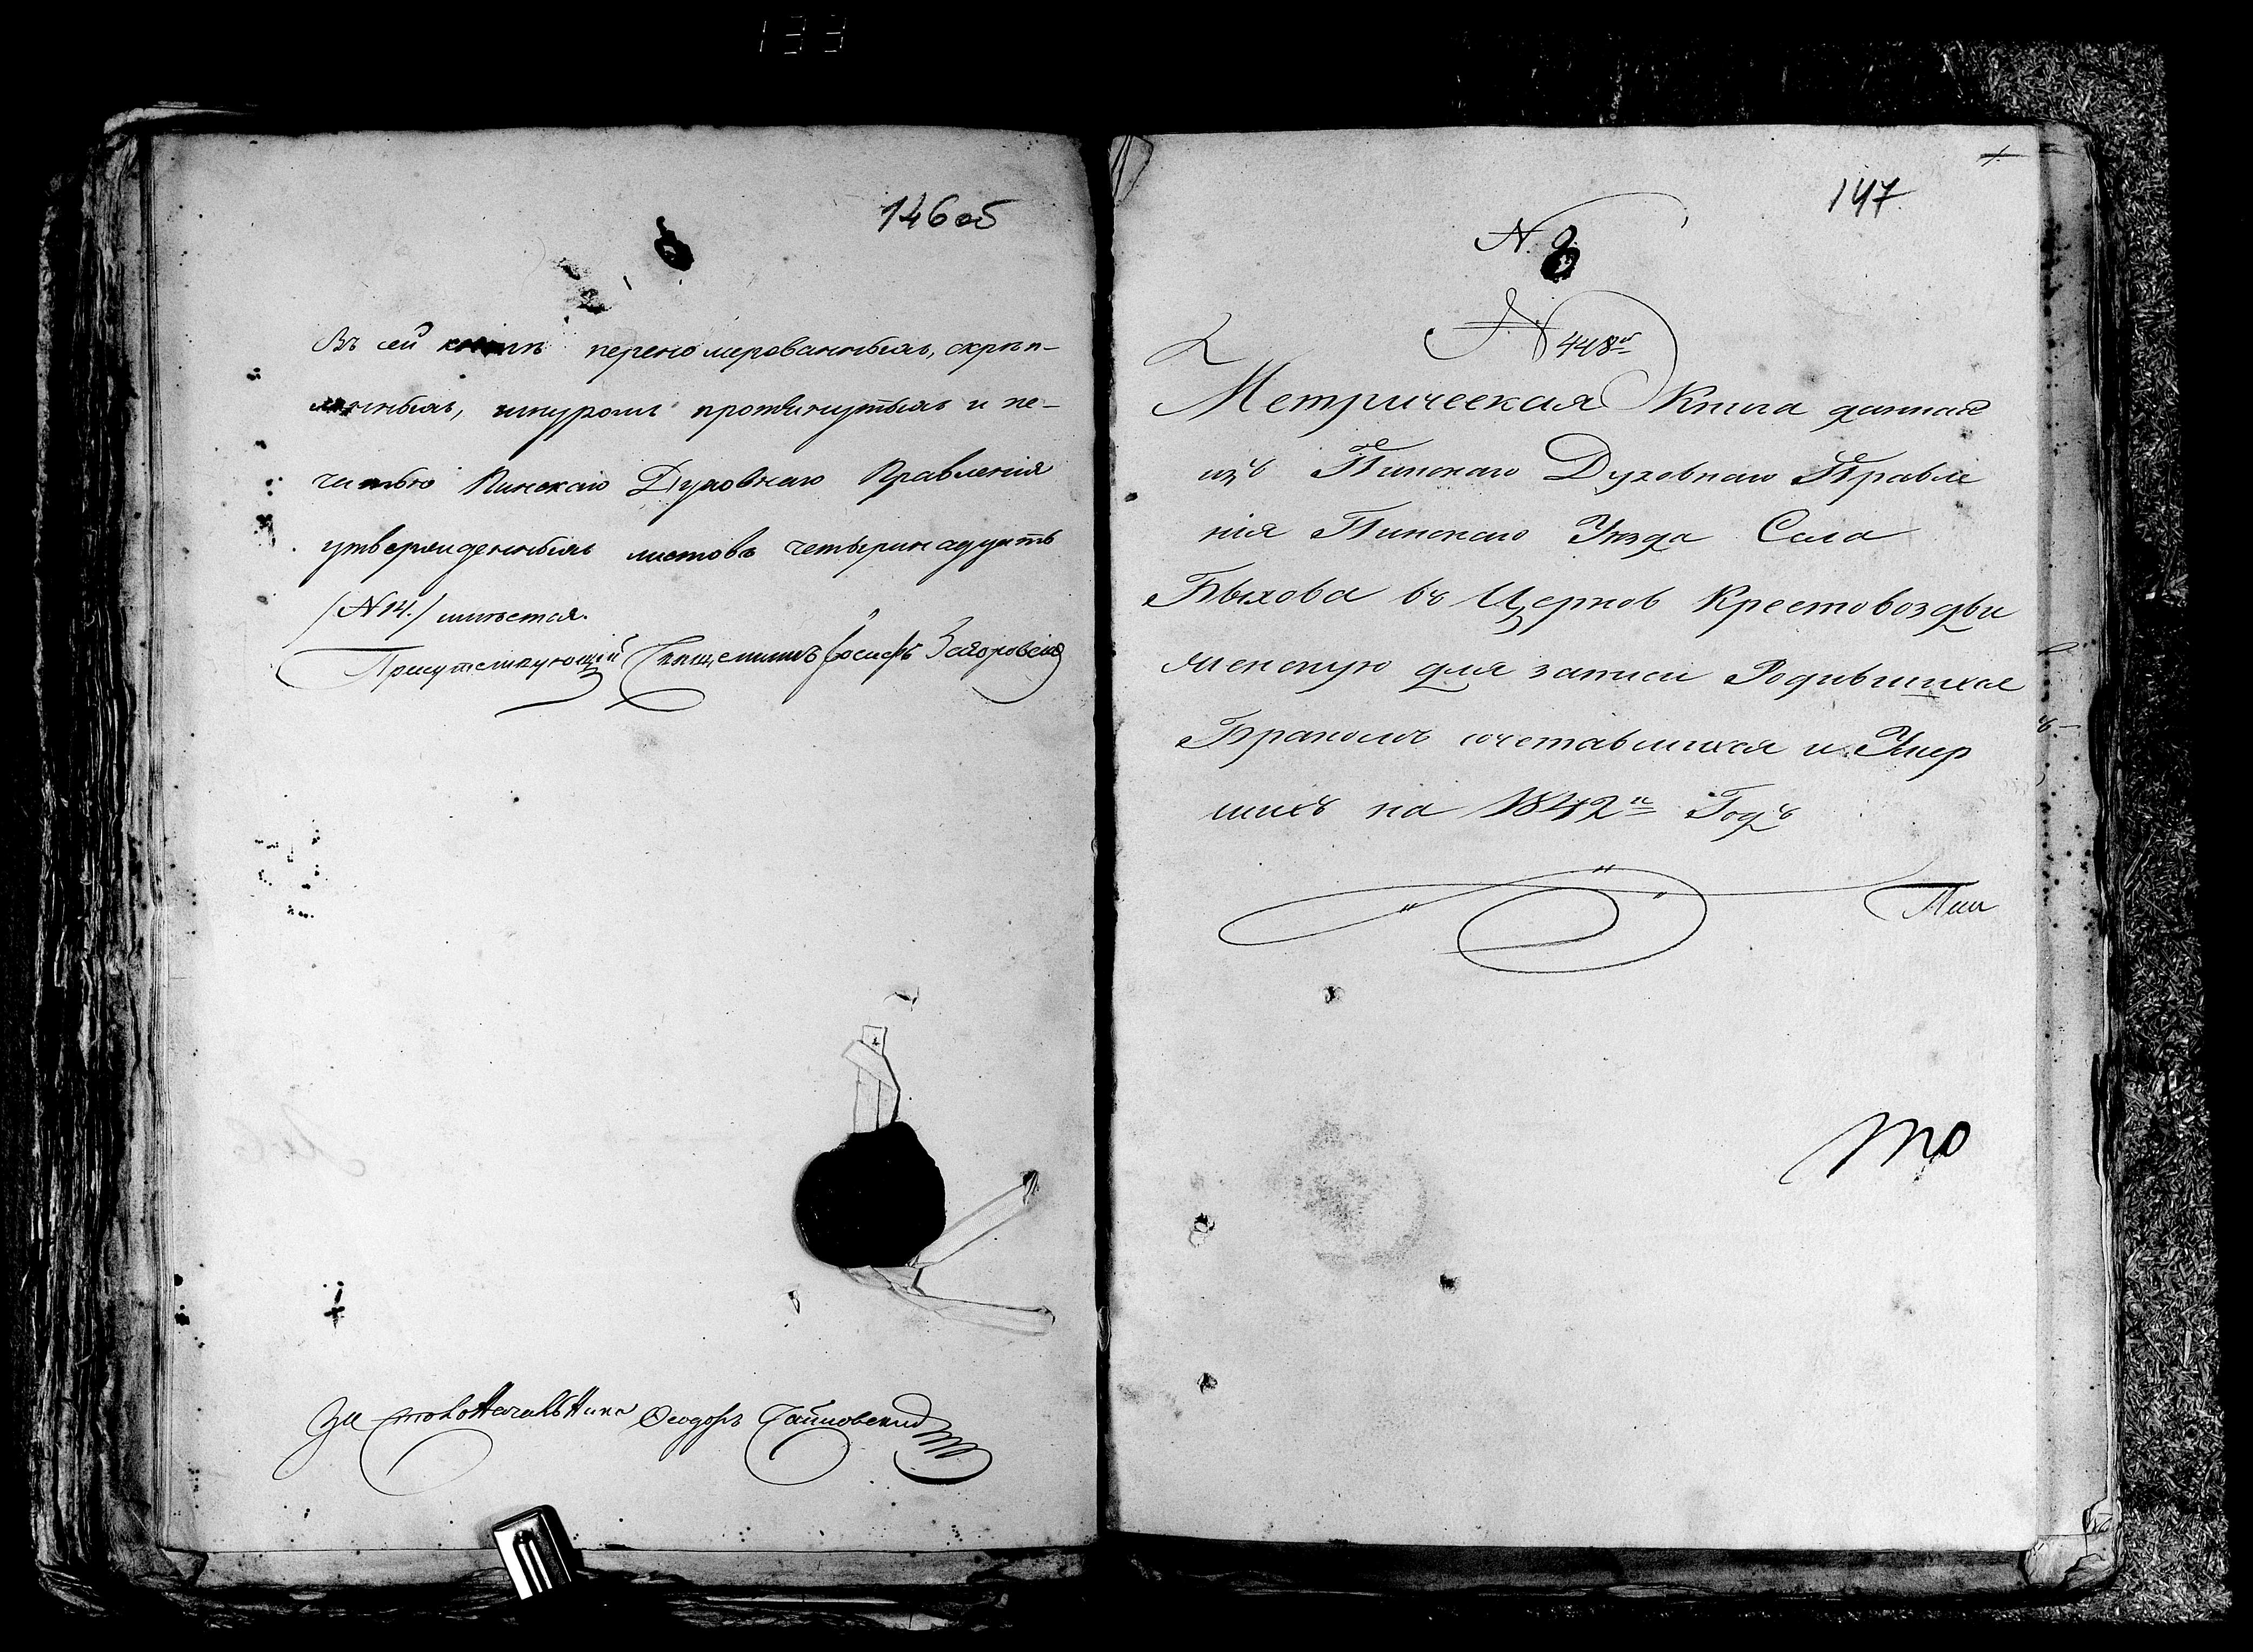 133
146 об
Въ сей книгѣ переномерованныхъ, скрѣп-
ленныхъ, шнуромъ протянутыхъ и пе-
чатью Пинскаго Духовнаго Правленія
утвержденныхъ листовъ четырнадцать
(N 14.) имѣется.
Присутствующій Священникъ Іосифъ
За столоначальника Ѳеодоръ
147
N. 8
N 448й
Метрическая Книга данная
изъ Пинскаго Духовнаго Правле
нія Пинскаго Уѣзда Села
Быхова въ Церковь Крестовоздви
женскую для записи Родившихся
Бракомъ сочетавшихся и Умер
шихъ на 1842й Годъ
Пин
то